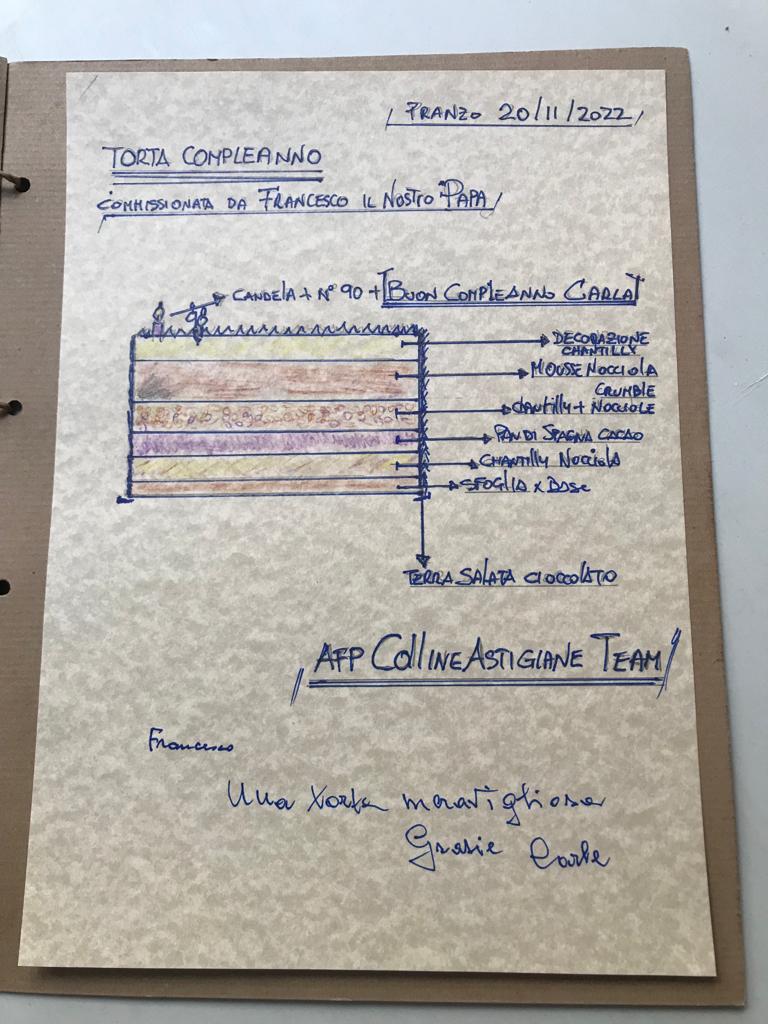 PRANZO 20/11/2022
TORTA COMPLEANNO
COMMISSIONATA DA FRANCESCO IL NOSTRO PAPA
CANDELA + N° 90 + BUON COMPLEANNO CARLA
DECORAZIONE
CHANTILLY
MOUSSE NOCCIOLA
CRUMBLE
CHANTILLY + NOCCIOLE
PAN DI SPAGNA CACAO
CHANTILLY NOCCIOLA
SFOGLIA x BASE
TERRA SALATA CIOCCOLATO
AFP COLLINE ASTIGIANE TEAM
Francesco
Una torta meravigliosa
Grazie Carla